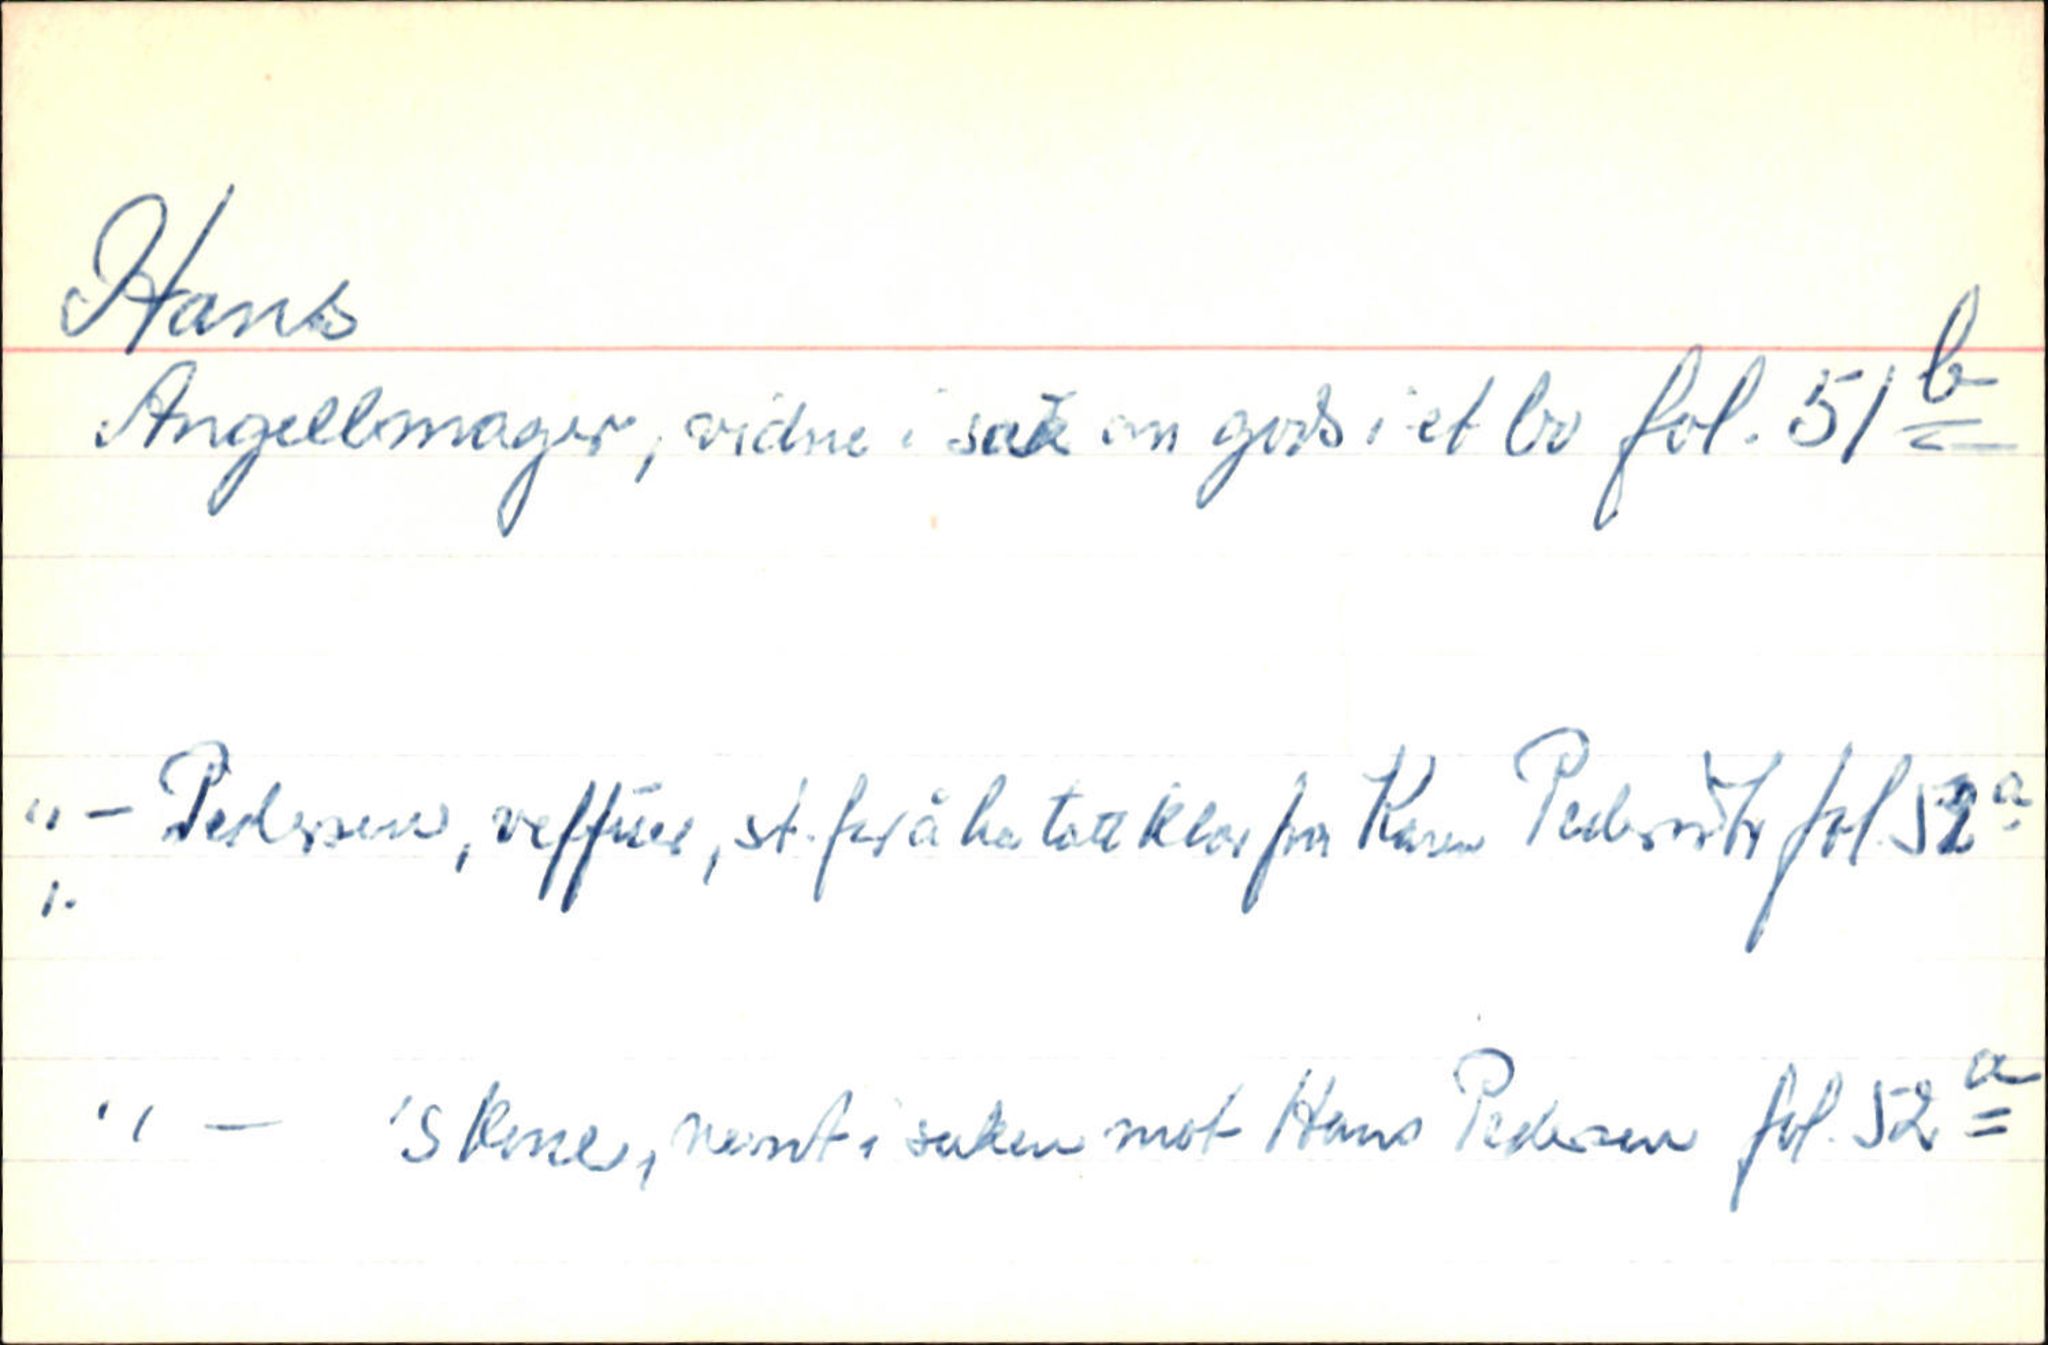 Hans
Angellmager, vidne i sak om gods i et bo fol. 51 b
" - Pedersen, st. for å ha tatt klær fra Karen Pedersdtr fol. 52 a
" - 's kone, nevnt i saken mot Hans Pedersen fol. 52 a